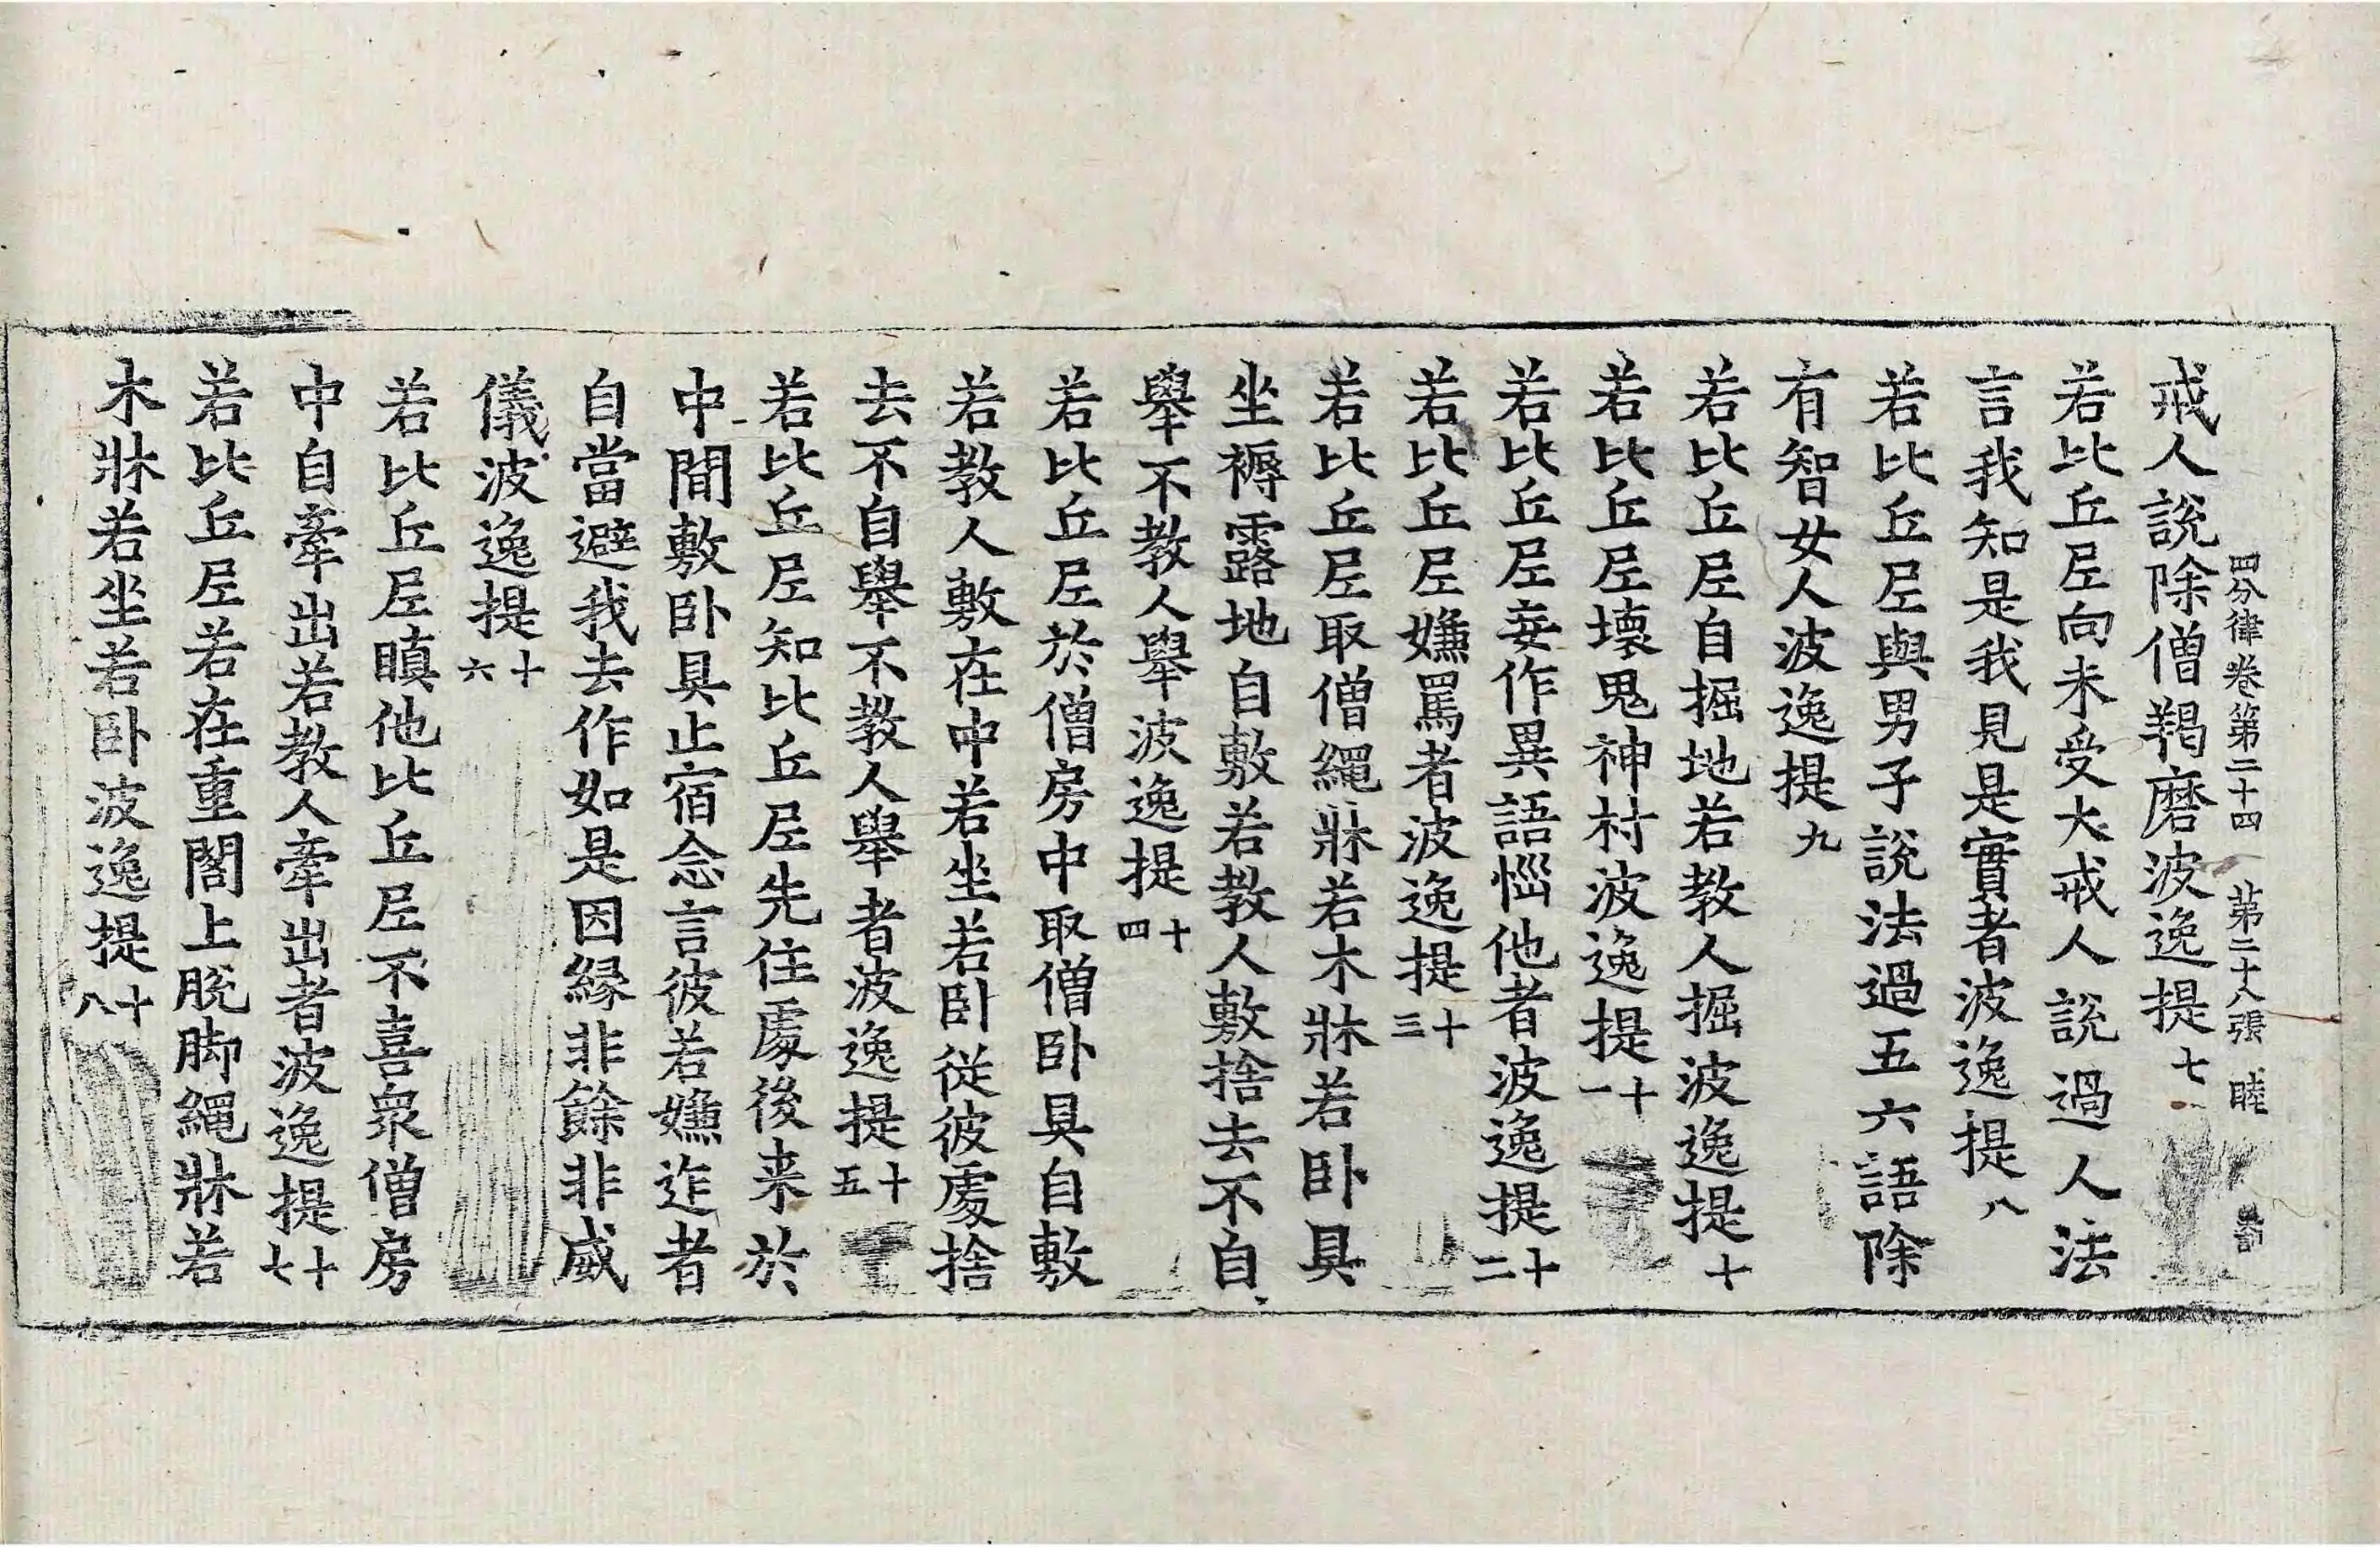 四分律卷第二十四 苐二十八張 睦
戒人說除僧羯磨波逸提七
若比丘𡰱向未受大戒人說過人法
言我知是我見是實者波逸提八
若比丘𡰱與男子說法過五六語除
有智女人波逸提九
若比丘𡰱自掘地若教人掘波逸提十
若比丘𡰱壞鬼神村波逸提十一
若比丘𡰱妄作異語惱他者波逸提十二
若比丘𡰱嫌罵者波逸提十三
若比丘𡰱取僧繩牀若木牀若卧具
坐褥露地自敷若教人敷捨去不自
舉不教人舉波逸提十四
若比丘𡰱於僧房中取僧卧具自敷
若教人敷在中若坐若卧從彼處捨
去不自舉不教人舉者波逸提十五
若比丘𡰱知比丘𡰱先住處後来於
中間敷卧具止宿念言彼若嫌迮者
自當避我去作如是因緣非餘非威
儀波逸提十六
若比丘𡰱瞋他比丘𡰱不喜衆僧房
中自牽出若教人牽出者波逸提十七
若比丘𡰱若在重閣上脫脚繩牀若
木牀若坐若卧波逸提十八